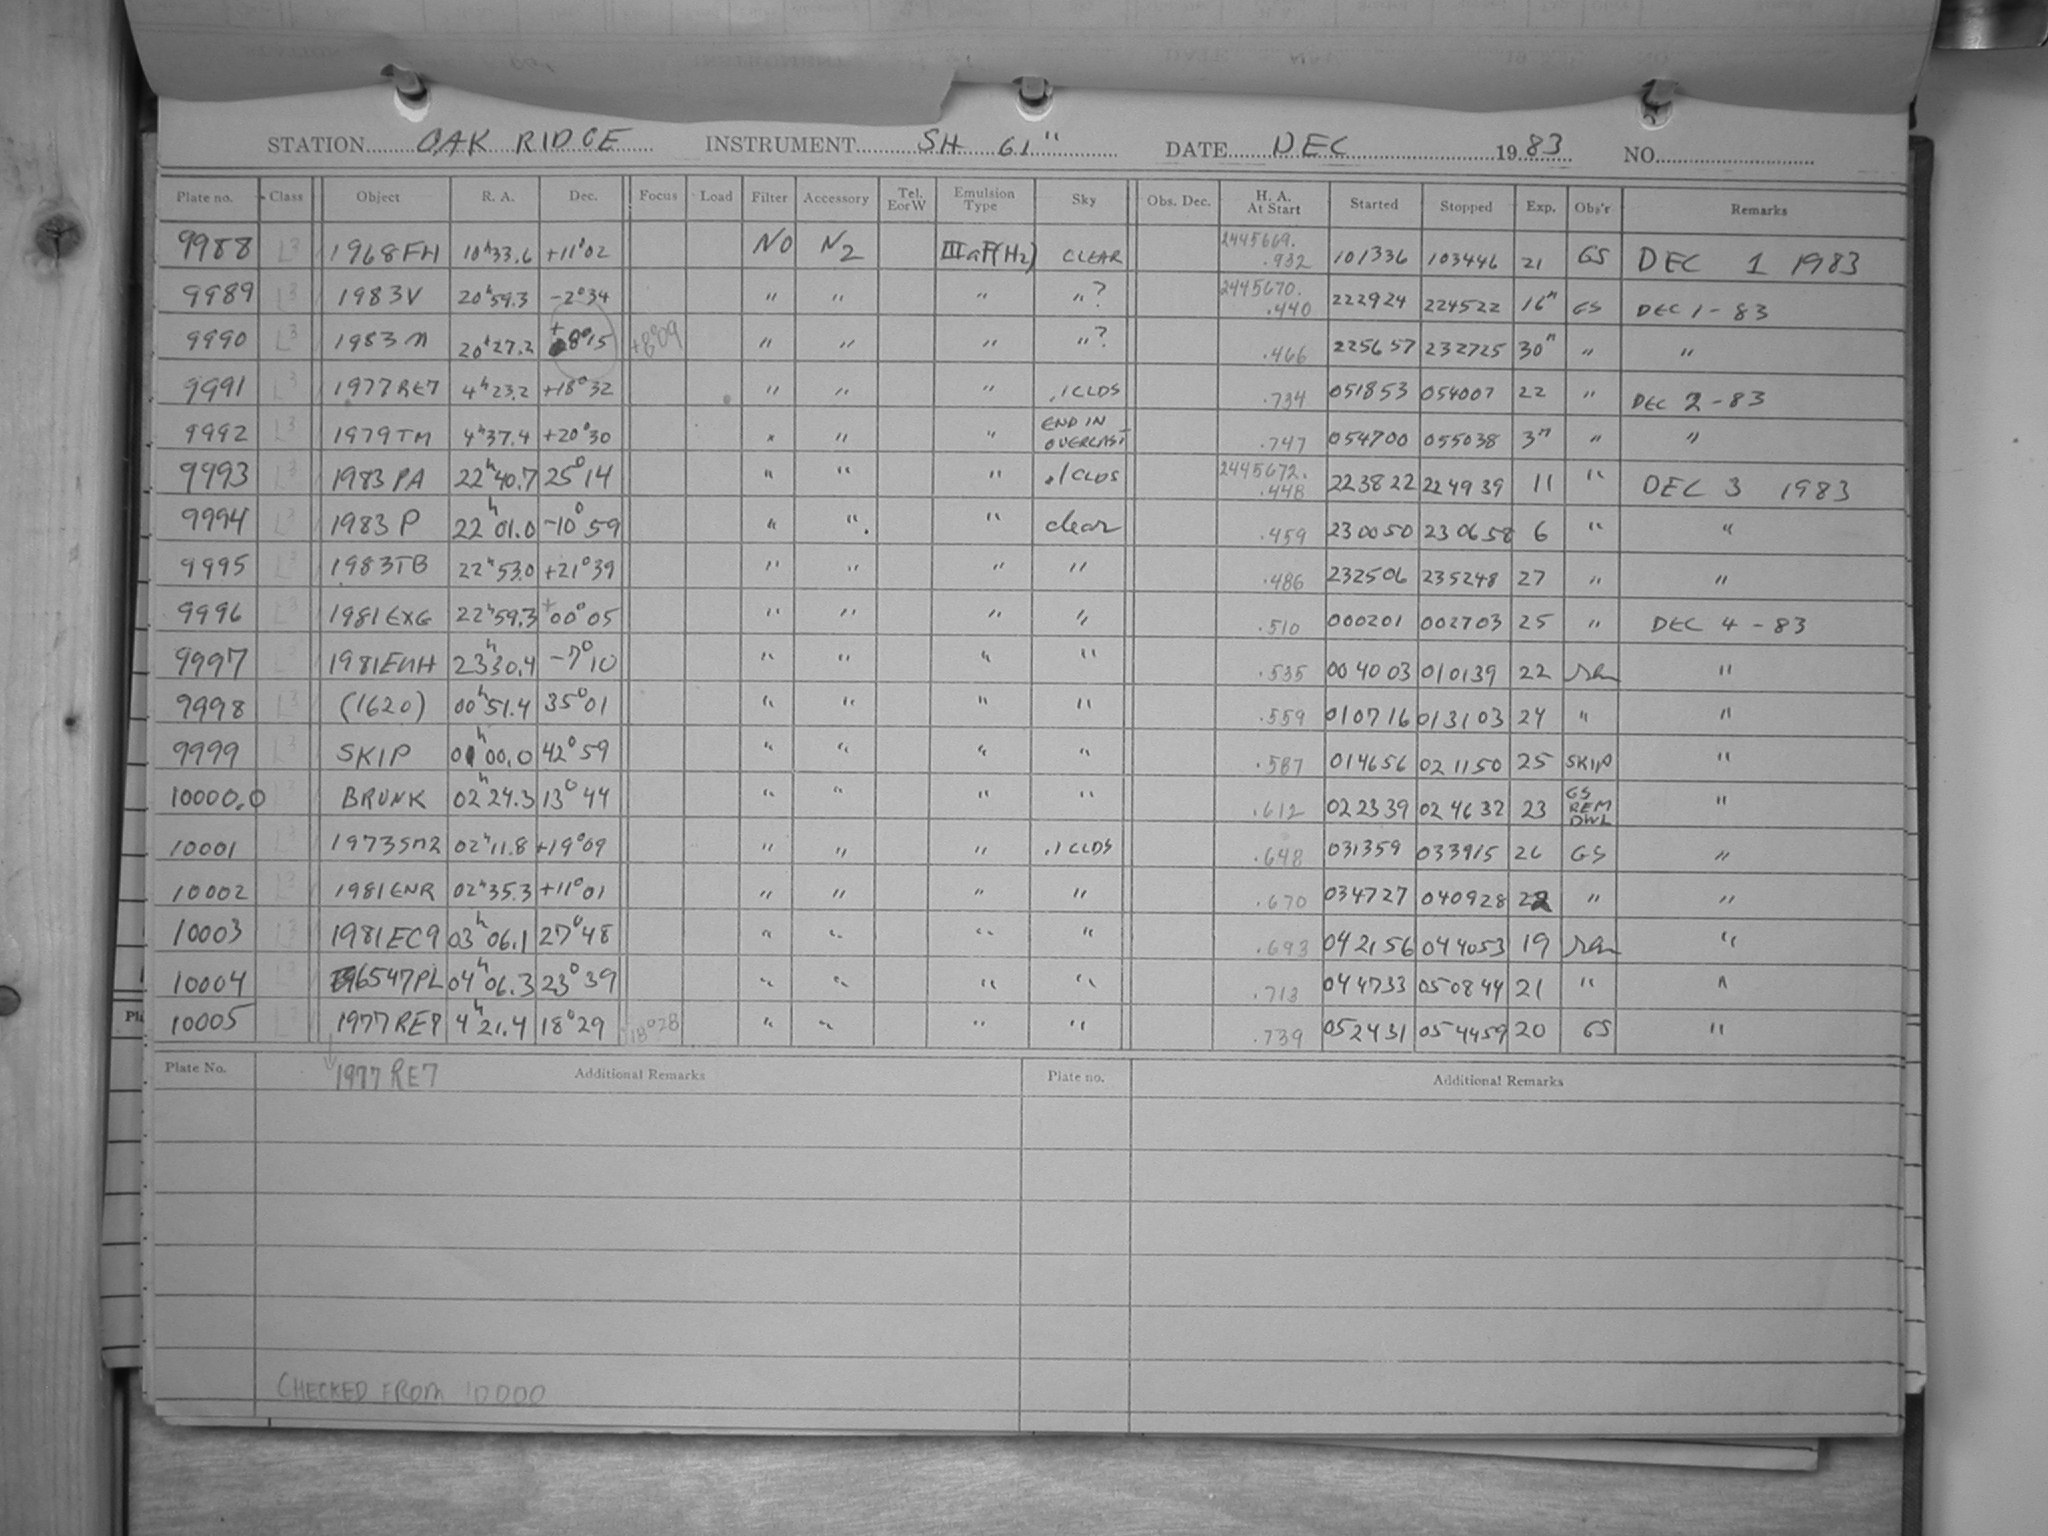 STATION OAK RIDGE INSTRUMENT SH 61" DATE DEC 1983 NO.
Plate no. Class Object R. A. Dec. Focus Load Filter Accessory Tel. E or W Emulsion Type Sky Obs. Dec. H. A. At Start Started Stopped Exp. Obs'r Remarks
9988 L3 1968FH 10h33.6 +11°02 NO N2 IIIaF(H2) CLEAR 2445669. .932 101336 103446 21 GS DEC 1 1983
9989 L3 1983V 20h59.3 -2°34 " " " "? 2445670. .440 222924 224522 16m GS DEC 1-83
9990 L3 1983 20h27.2 +8°15 +8°09 " " " "? .466 225657 232725 30m " "
9991 L3 1977RE7 4h23.2 +18°32 " " " .1CLDS .734 051853 054007 22 " DEC 2-83
9992 L3 1979TM 4h37.4 +20°30 " " " END IN OVERCAST .747 054700 055038 3m " "
9993 L3 1983PA 22h40.7 25°14 " " " .1CLDS 2445672. .448 223822 224939 11 " DEC 3 1983
9994 L3 1983 P 22h01.0 -10°59 " " " clear .459 230050 230658 6 " "
9995 L3 1983TB 22h53.0 +21°39 " " " " .486 232506 235248 27 " "
9996 L3 1981EXG 22h59.3 +00°05 " " " " .510 000201 002703 25 " DEC 4-83
9997 L3 1981EUH 23h30.4 -7°10 " " " " .535 004003 010139 22 "
9998 L3 (1620) 00h51.4 35°01 " " " " .559 010716 013103 24 " "
9999 L3 SKIP 01h00.0 42°59 " " " " .587 014656 021150 25 SKIP "
10000.0 L3 BRUNK 02h24.3 13°44 " " " " .612 022339 024632 23 GS REM DWL "
10001 L3 1973SM2 02h11.8 +19°09 " " " .1CLDS .648 031359 033915 26 GS "
10002 L3 1981ENR 02h35.3 +11°01 " " " " .670 034727 040928 22 " "
10003 L3 1981EC9 03h06.1 27°48 " " " " .693 042156 044053 19 "
10004 L3 6547PL 04h06.3 23°39 " " " " .713 044733 050844 21 " "
10005 L3 1977RE7 4h21.4 18°29 18°28 " " " " .739 052431 054459 20 GS "
Plate No. 1977 RE7 Additional Remarks Plate no. Additional Remarks
CHECKED FROM 10000